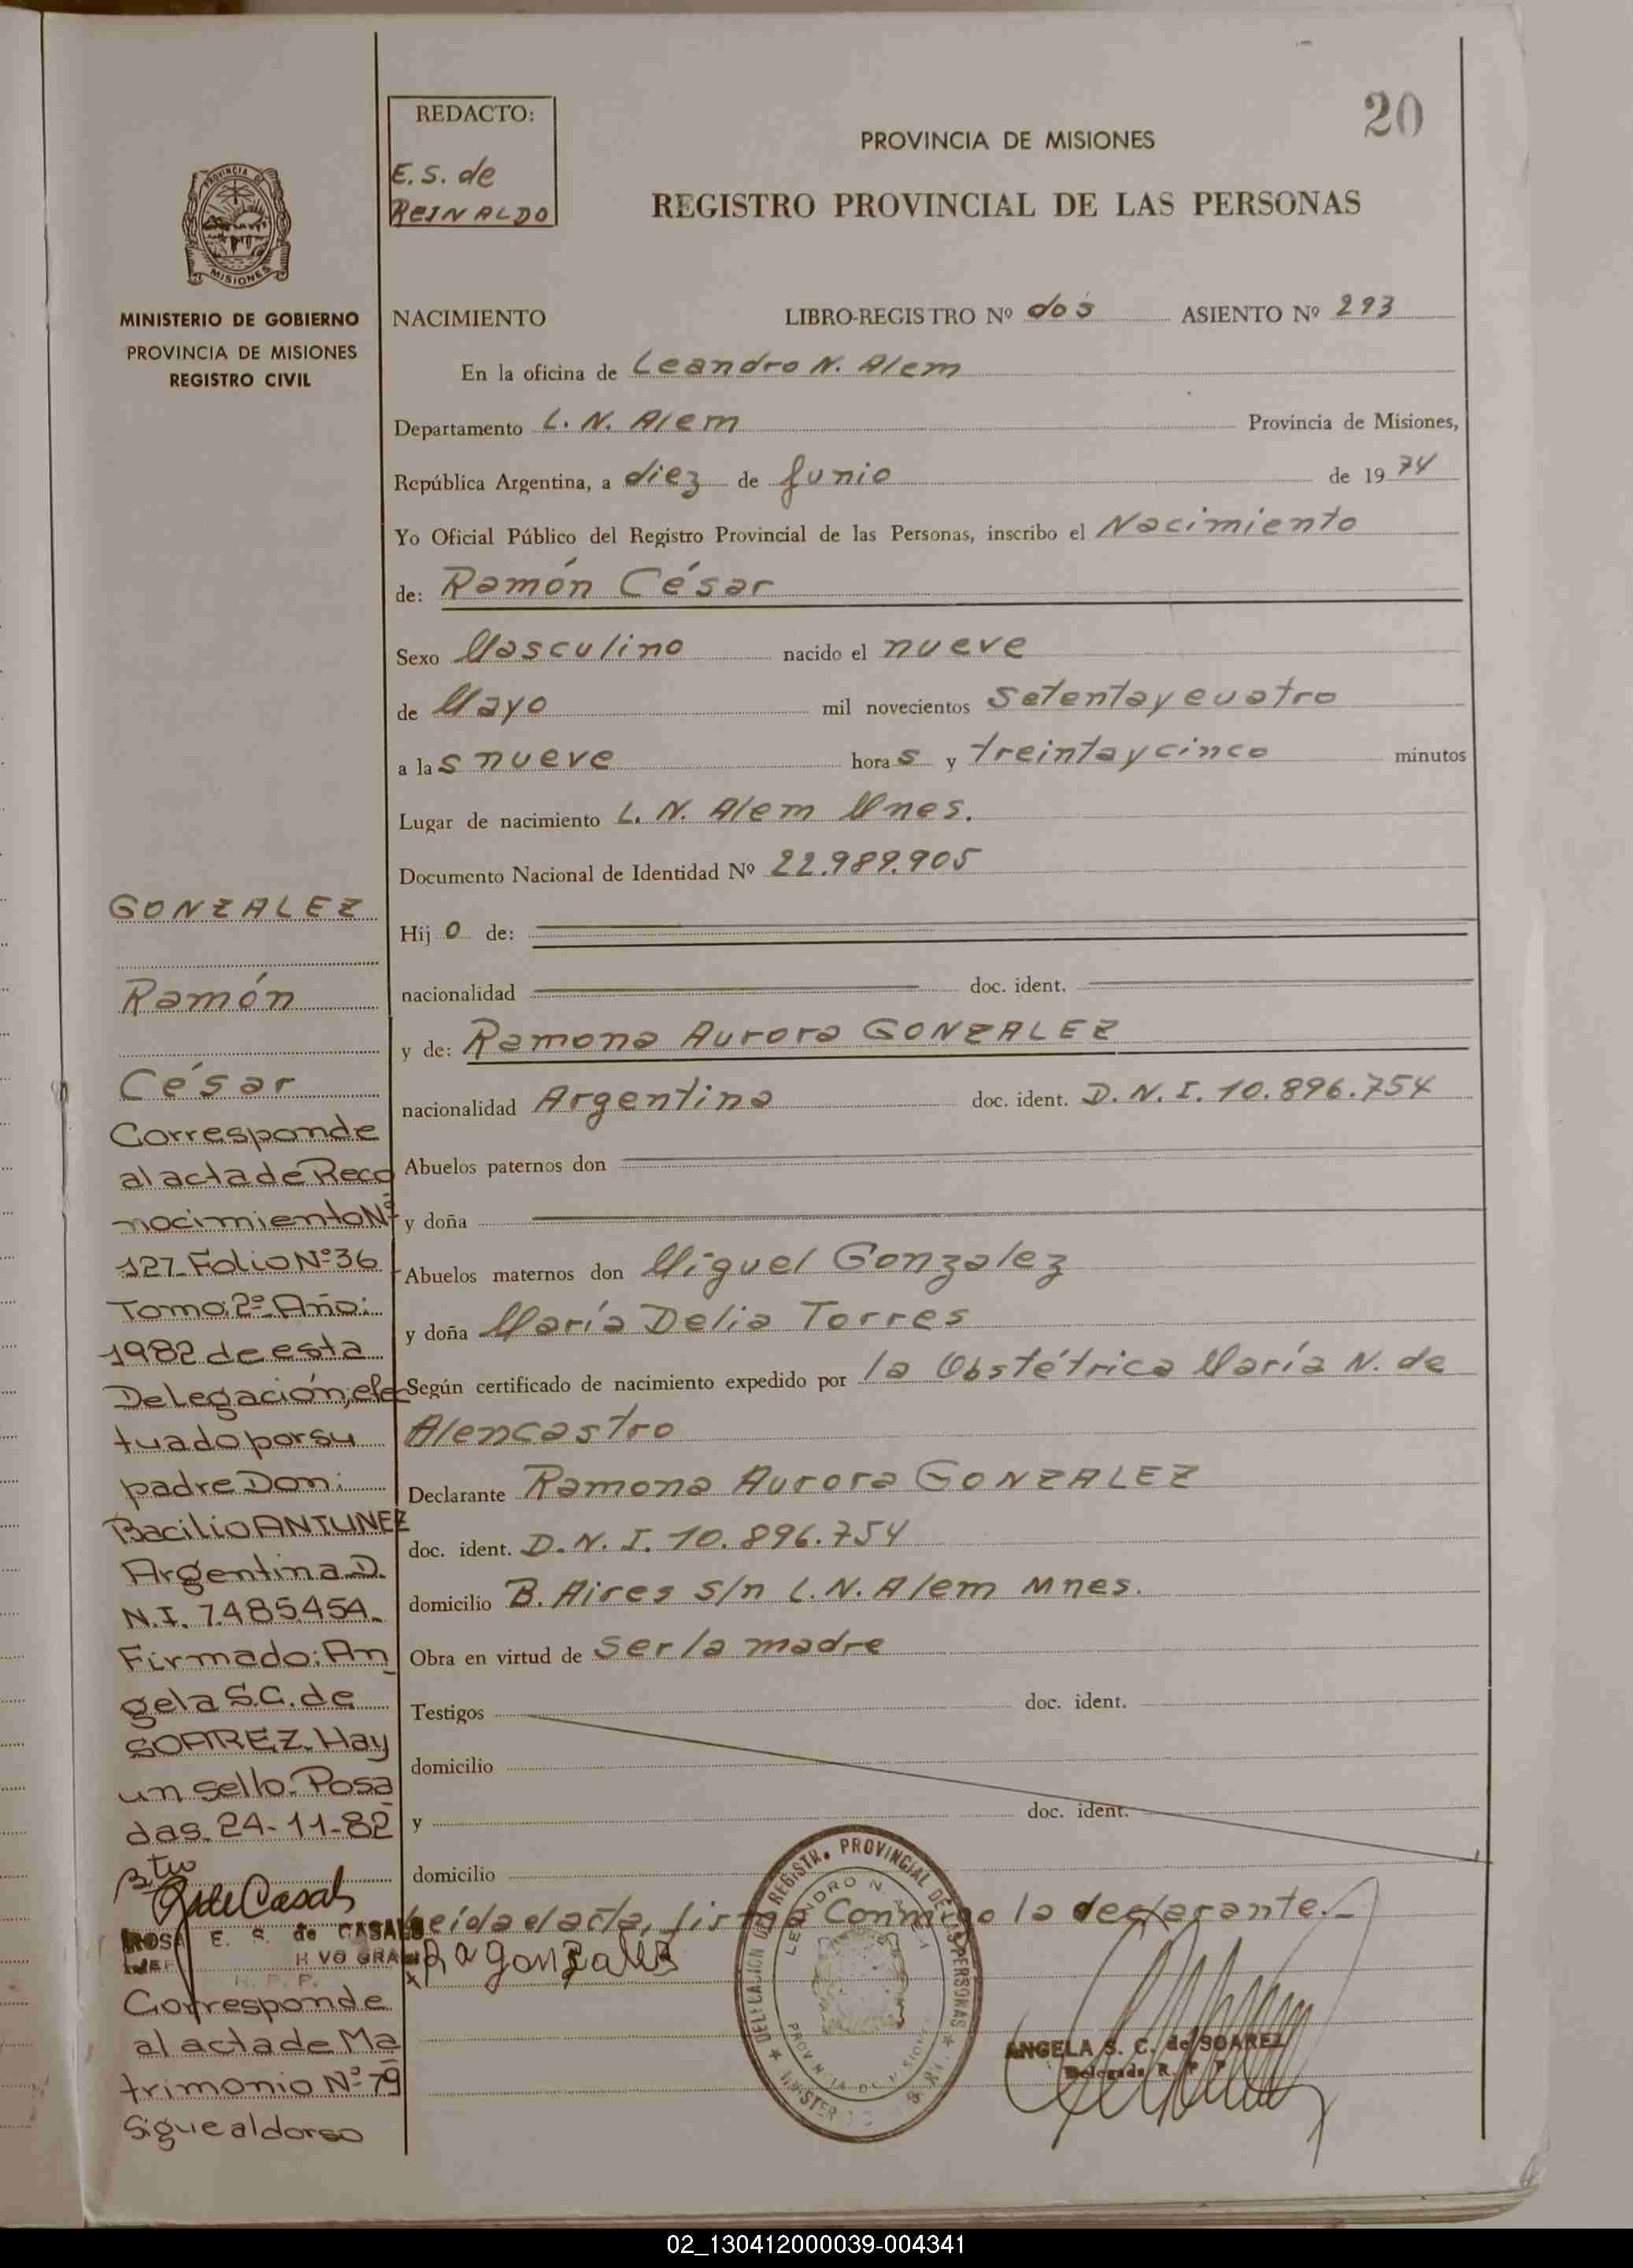 20
REDACTO:
E. S. de
REINALDO
PROVINCIA DE MISIONES
REGISTRO PROVINCIAL DE LAS PERSONAS
PROVINCIA DE
MISIONES
MINISTERIO DE GOBIERNO
PROVINCIA DE MISIONES
REGISTRO CIVIL
NACIMIENTO LIBRO-REGISTRO Nº dos ASIENTO Nº 293
En la oficina de Leandro N. Alem
Departamento L. N. Alem Provincia de Misiones,
República Argentina, a diez de Junio de 1974
Yo Oficial Público del Registro Provincial de las Personas, inscribo el Nacimiento
de: Ramón César
Sexo Masculino nacido el nueve
de Mayo mil novecientos setenta y cuatro
a las nueve horas y treinta y cinco minutos
Lugar de nacimiento L. N. Alem Mnes.
Documento Nacional de Identidad Nº 22.989.905
Hijo de:
nacionalidad doc. ident.
y de: Ramona Aurora GONZALEZ
nacionalidad Argentina doc. ident. D. N. I. 10.896.754
Abuelos paternos don
y doña
Abuelos maternos don Miguel Gonzalez
y doña María Delia Torres
Según certificado de nacimiento expedido por la Obstétrica María N. de
Alencastro
Declarante Ramona Aurora GONZALEZ
doc. ident. D. N. I. 10.896.754
domicilio B. Aires s/n L. N. Alem Mnes.
Obra en virtud de ser la madre
Testigos doc. ident.
domicilio
y doc. ident.
domicilio
Leída el acta, firma Conmigo la declarante.-
R a gonzalez
ANGELA S. C. de SOAREZ
Delegada R. P. P.
GONZALEZ
Ramón
César
Corresponde
al acta de Reco
nocimiento Nº
127 Folio Nº 36
Tomo: 2º Año:
1982 de esta
Delegación; efec
tuado por su
padre Don:
Bacilio ANTUNEZ
Argentina D.
N.I. 7.485.454.
Firmado: An
gela S.C. de
SOAREZ. Hay
un sello. Posa
das. 24-11-82
R de Casals
ROSA E. S. de CASALS
R. P. P.
Corresponde
al acta de Ma
trimonio Nº 79
Sigue al dorso
02_130412000039-004341